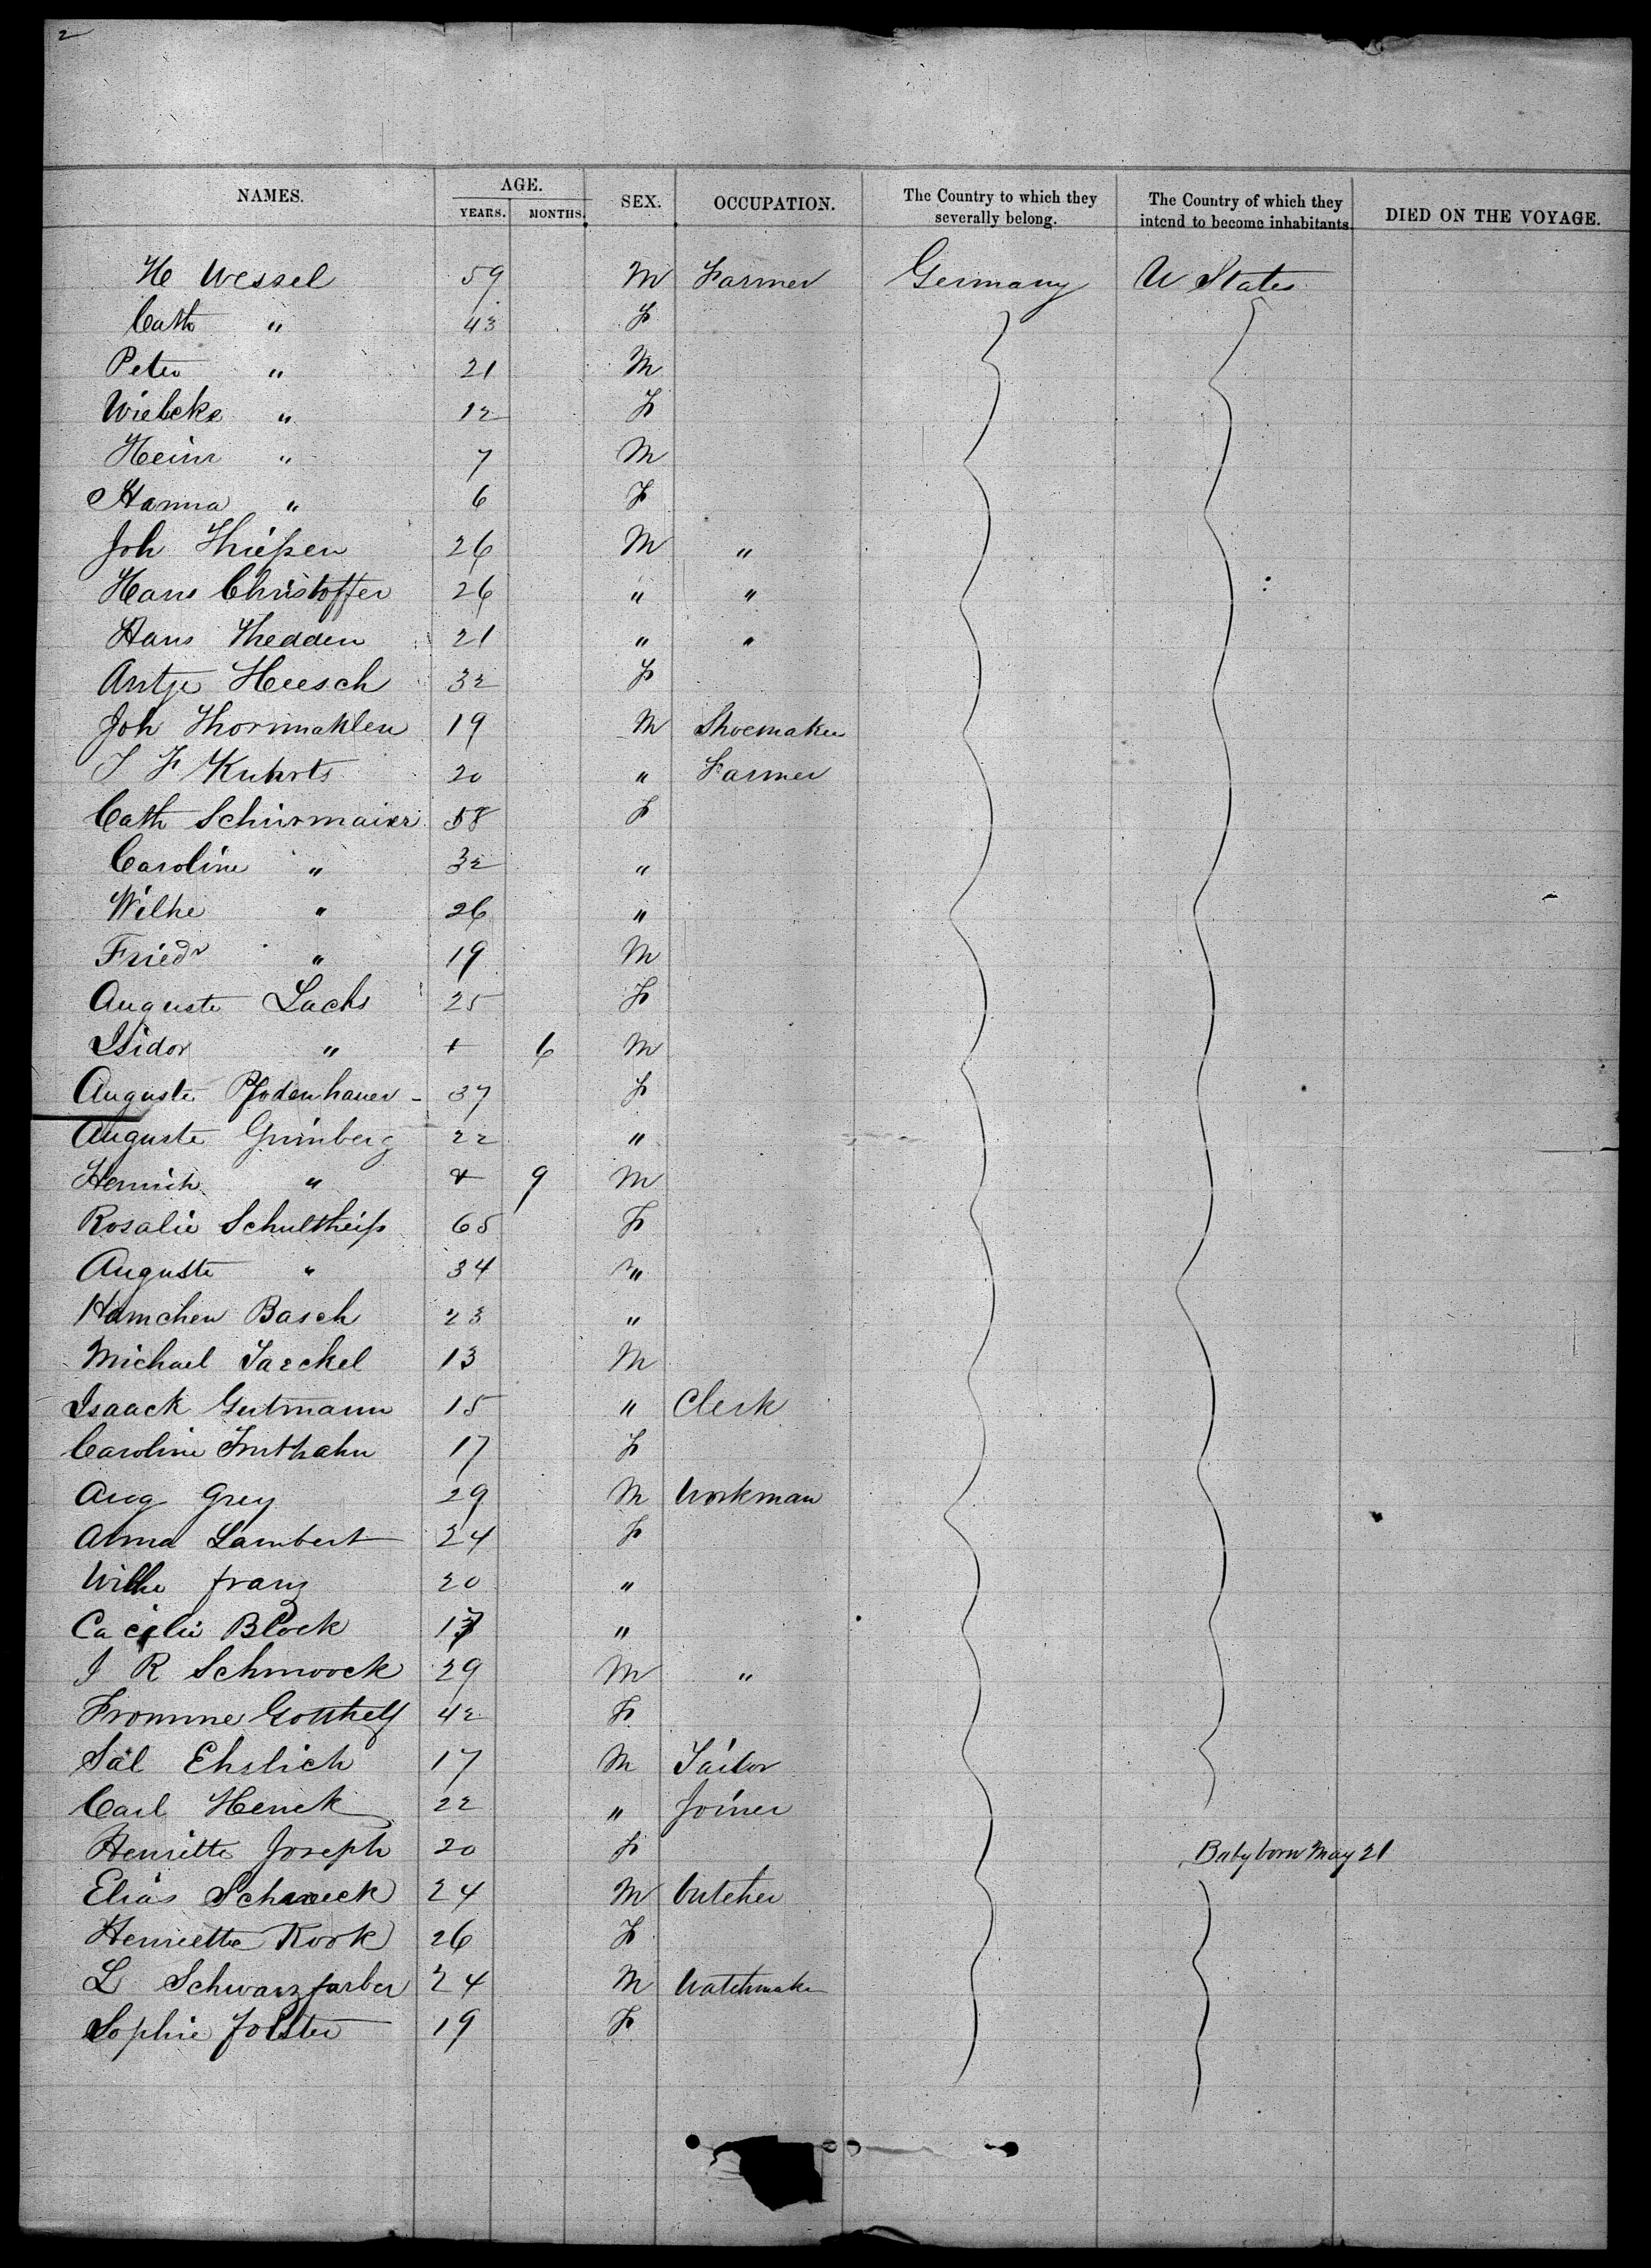 2
NAMES. AGE. YEARS. MONTHS. SEX. OCCUPATION. The Country to which they severally belong. The Country of which they intend to become inhabitants. DIED ON THE VOYAGE.
H Wessel 59 M Farmer Germany U States
Cath " 43 F
Peter " 21 M
Wiebcke " 12 F
Heinr " 7 M
Hanna " 6 F
Joh Thießen 26 M "
Hans Christoffer 26 " "
Hans Thedden 21 " "
Antje Heesch 32 F
Joh Thormahlen 19 M Shoemaker
J F Kuhrts 20 " Farmer
Cath Schirmaier 58 F
Caroline " 32 "
Wilhe " 26 "
Friedr " 19 M
Auguste Lachs 25 F
Isidor " + 6 M
Auguste Pfodenhauer - 37 F
Auguste Grünberg 22 "
Henrich " + 9 M
Rosalie Schultheiß 65 F
Auguste " 34 "
Hamchen Basch 23 "
Michael Jaeckel 13 M
Isaack Gutmann 15 " Clerk
Caroline 17 F
Aug Grey 29 M Workman
Alma Lambert 24 F
Wilhe Franz 20 "
Cacilie Block "
J R Schmoock 29 M "
Fromme Gotthelf 42 F
Sal Ehrlich 17 M Tailor
Carl Henck 22 " Joiner
Henriette Joseph 20 F Baby born May 21
Elias 24 M butcher
Henriette Kook 26 F
L Schwarzfarber 24 M Watchmaker
Sophie Jolster 19 F